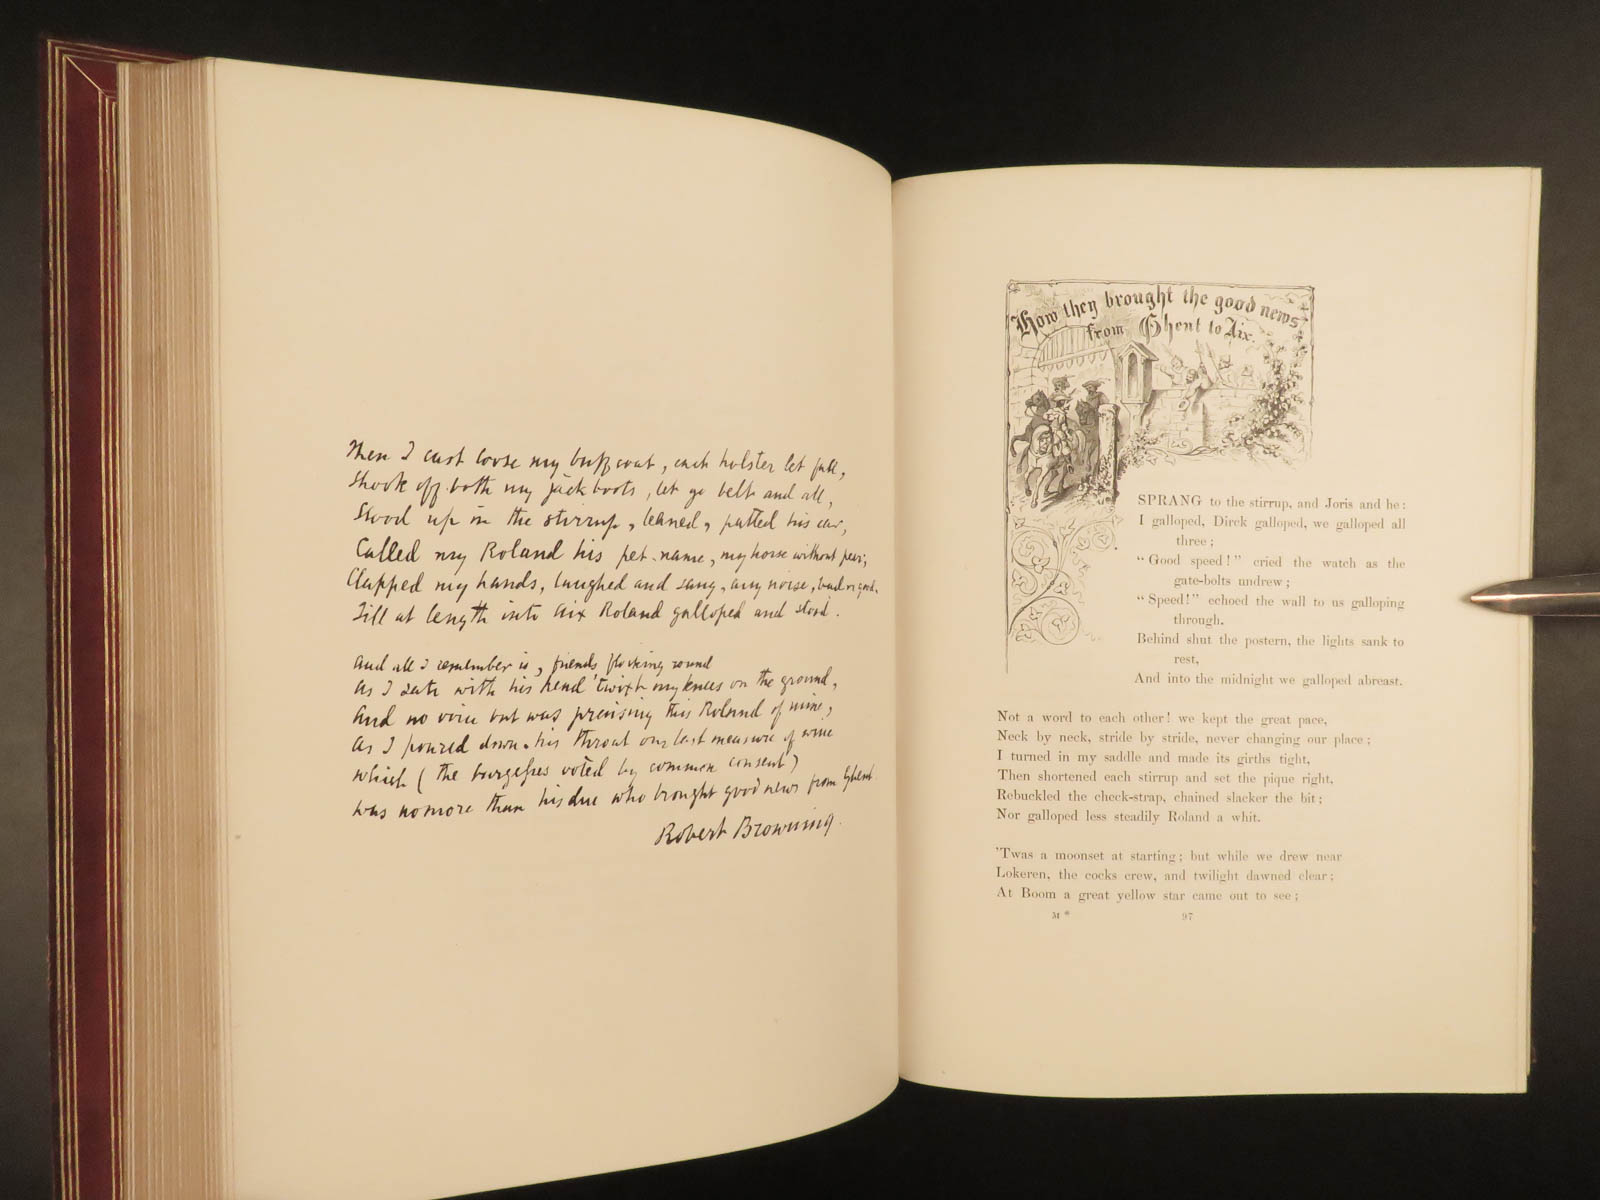 Then I cast loose my buffcoat, each holster let fall,
Shook off both my jack boots, let go belt and all,
Stood up in the stirrup, leaned, patted his ear,
Called my Roland his pet-name, my horse without peer;
Clapped my hands, laughed and sang, any noise, bad or good,
Till at length into Aix Roland galloped and stood.
And all I remember is, friends flocking round
As I sate with his head 'twixt my knees on the ground,
And no voice but was praising this Roland of mine,
As I poured down his throat our last measure of wine
Which (the burgesses voted by common consent)
Was no more than his due who brought good news from Ghent
Robert Browning.
How they brought the good news
from Ghent to Aix.
SPRANG to the stirrup, and Joris and he:
I galloped, Dirck galloped, we galloped all
three;
“Good speed!” cried the watch as the
gate-bolts undrew;
“Speed!” echoed the wall to us galloping
through.
Behind shut the postern, the lights sank to
rest,
And into the midnight we galloped abreast.
Not a word to each other! we kept the great pace,
Neck by neck, stride by stride, never changing our place;
I turned in my saddle and made its girths tight,
Then shortened each stirrup and set the pique right,
Rebuckled the check-strap, chained slacker the bit;
Nor galloped less steadily Roland a whit.
'Twas a moonset at starting; but while we drew near
Lokeren, the cocks crew, and twilight dawned clear;
At Boom a great yellow star came out to see;
M * 97